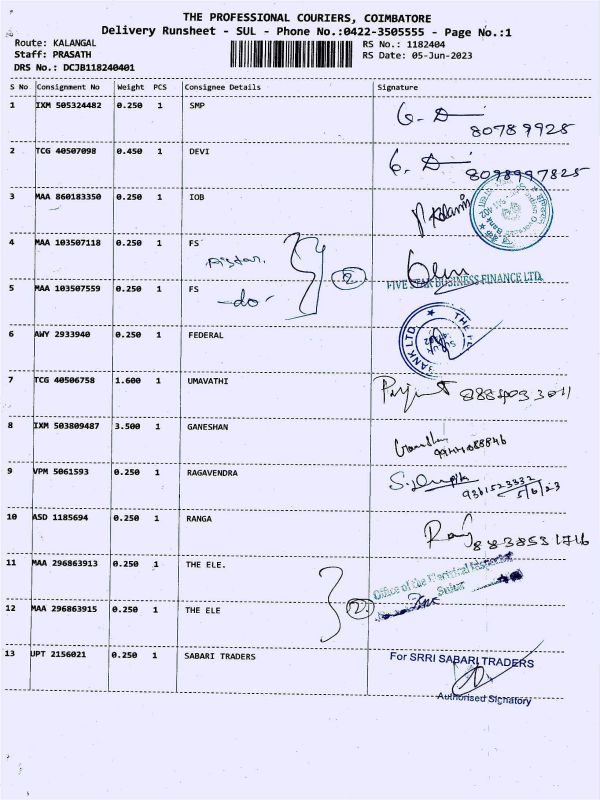 THE PROFESSIONAL COURIERS, COIMBATORE
Delivery Runsheet - SUL - Phone No.:0422-3505555 - Page No.:1
Route: KALANGAL RS No.: 1182404
Staff: PRASATH RS Date: 05-Jun-2023
DRS No.: DCJB118240401
S No Consignment No Weight PCS Consignee Details Signature
1 IXM 505324482 0.250 1 SMP
80789928
2 TCG 40507098 0.450 1 DEVI
8098997825
3 MAA 860183350 0.250 1 IOB
4 MAA 103507118 0.250 1 FS
2
FIVE STAR BUSINESS FINANCE LTD.
5 MAA 103507559 0.250 1 FS
-do-
6 AWY 2933940 0.250 1 FEDERAL
BANK LTD. ★ THE FE
7 TCG 40506758 1.600 1 UMAVATHI
8 IXM 503809487 3.500 1 GANESHAN
9 VPM 5061593 0.250 1 RAGAVENDRA
9361523332
5/6/23
10 ASD 1185694 0.250 1 RANGA
8838531716
11 MAA 296863913 0.250 1 THE ELE.
Office of the Electrical Inspector
12 MAA 296863915 0.250 1 THE ELE
2
13 UPT 2156021 0.250 1 SABARI TRADERS
For SRRI SABARI TRADERS
Authorised Signatory